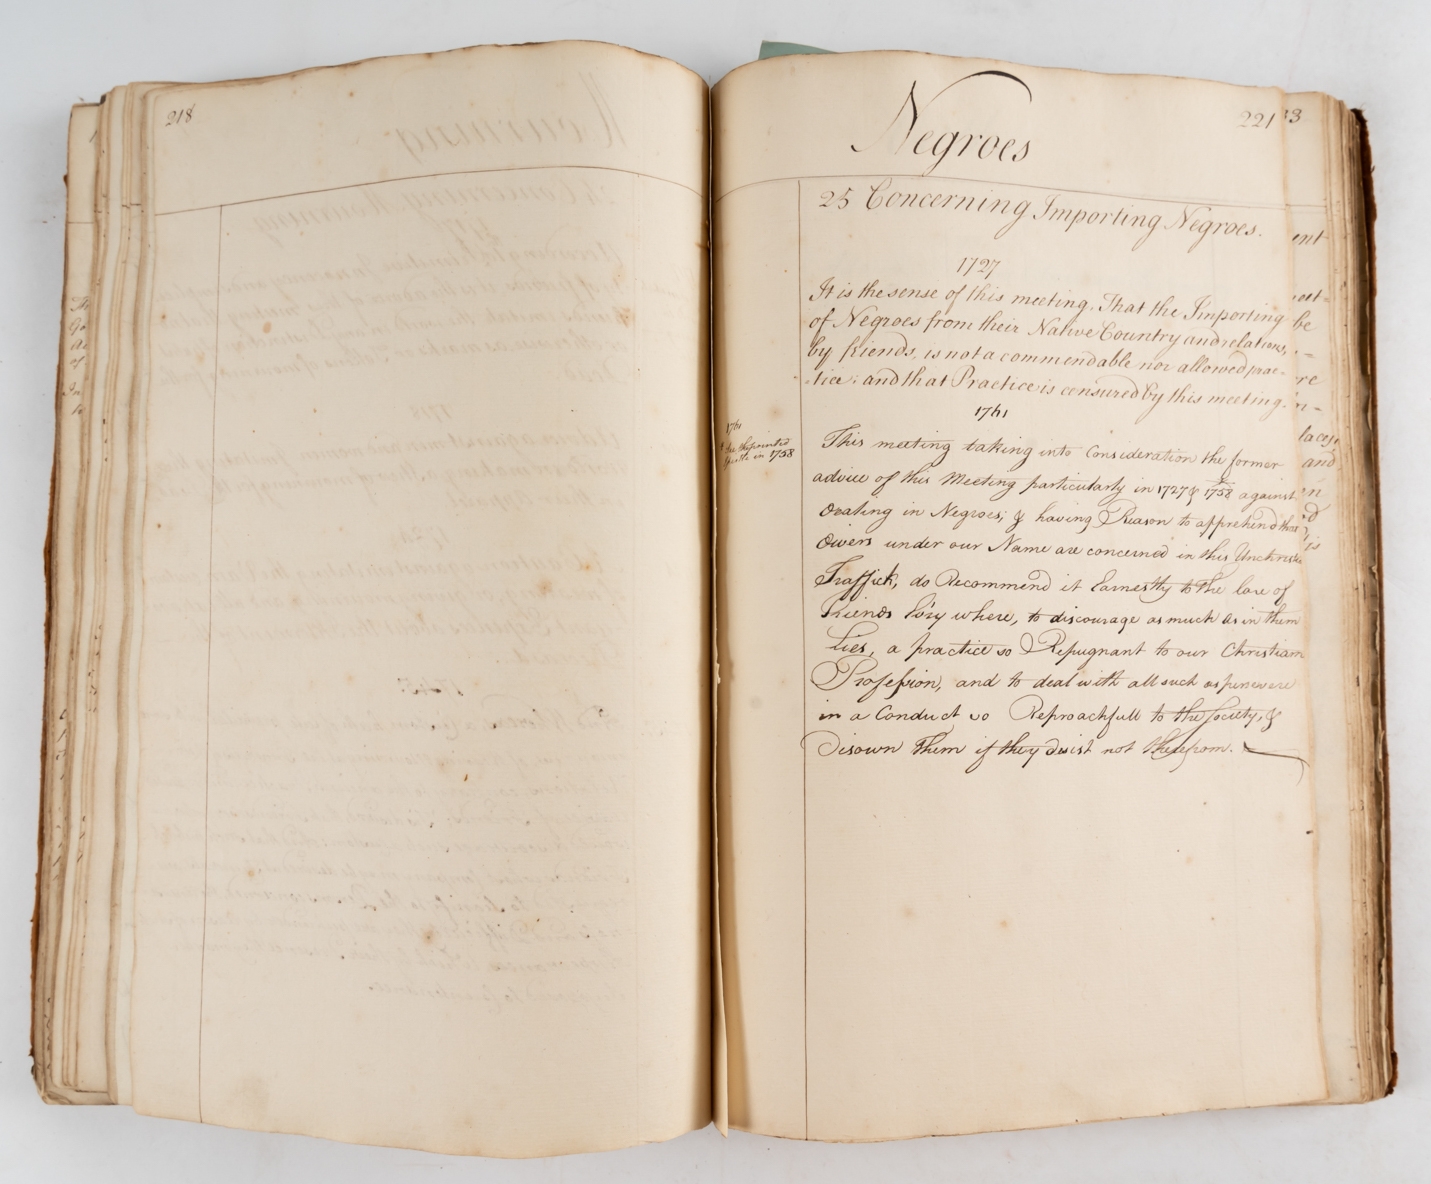 218
221
Negroes
25 Concerning Importing Negroes.
1727
It is the sense of this meeting, That the Importing
of Negroes from their Native Country and relations,
by friends, is not a commendable nor allowed prac-
tice; and that Practice is censured by this meeting.
1761
1761
See the printed
Epistle in 1758
This meeting taking into Consideration the former
advice of this Meeting particularly in 1727 & 1758 against
Dealing in Negroes; & having Reason to apprehend that
Divers under our Name are concerned in this Unchristi
Traffick, do Recommend it Earnestly to the Care of
friends Ev'ry where, to discourage as much as in them
Lies, a practice so Repugnant to our Christian
Profession, and to deal with all such as persevere
in a Conduct so Reproachfull to the Society, &
Disown Them if they desist not therefrom.